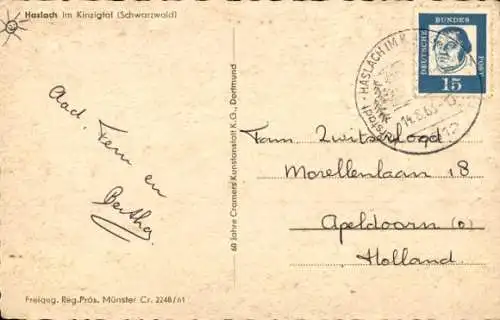 Haslach im Kinzigtal (Schwarzwald)
Aad, Fem en
Bertha
60 Jahre Cramers Kunstanstalt K.G., Dortmund
Freigeg. Reg. Präs. Münster Cr. 2248/61
DEUTSCHE BUNDES POST
15
HASLACH IM K
14.8.63
Fam. Zwitserlood
Morellenlaan 18
Apeldoorn (o)
Holland